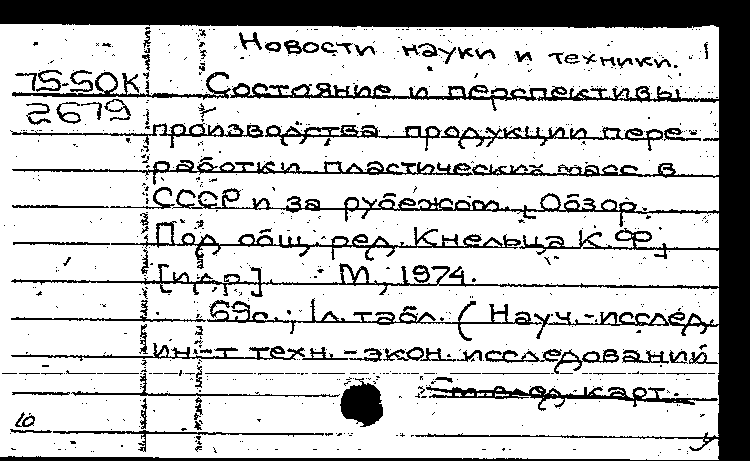 Новости науки и техники.
75-50К Состояние и перспективы
2679
производства продукции пере-
работки пластических масс в
СССР и за рубежом. Обзор.
Под общ. ред. Кнельца К.Ф.
[и др.] М., 1974.
69с.; 1л. табл. (Науч.-исслед.
ин-т техн.-экон. исследований
См. след. карт.
10